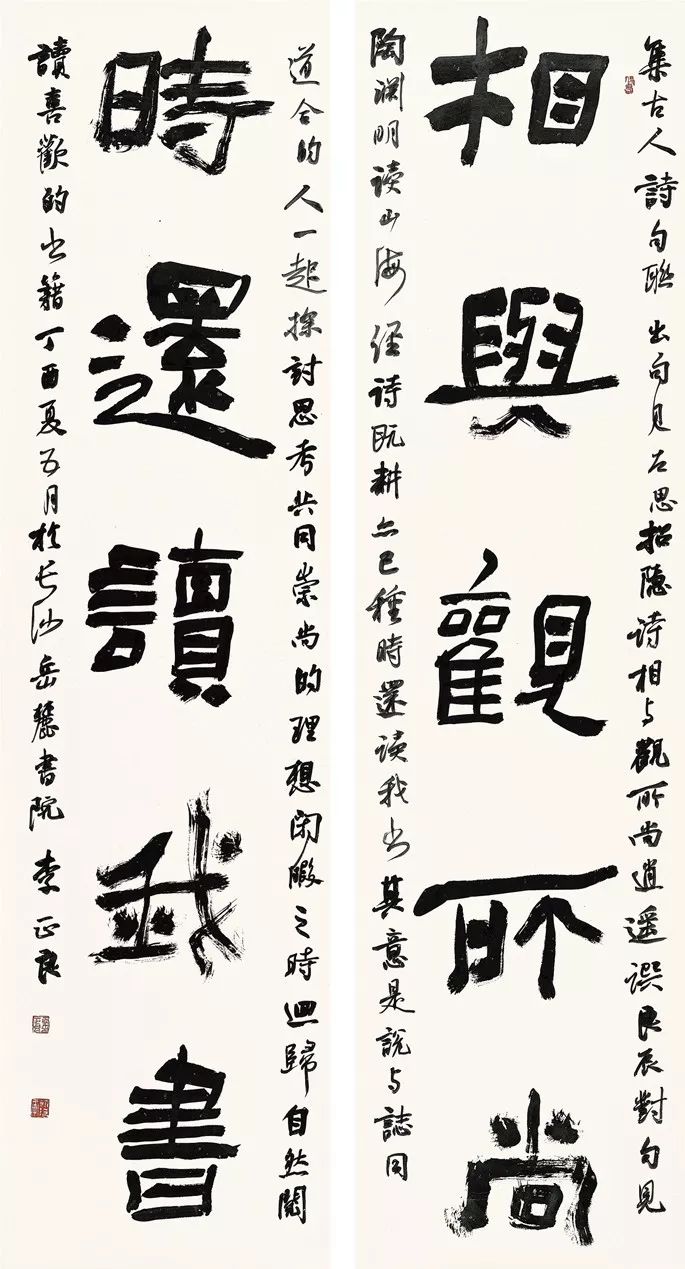 集古人詩句聯出句见左思招隐诗相与觀所尚逍遥譔良辰對句見
相與觀所尚
陶渊明读山海经诗既耕亦已種時還读我书其意是說与誌同
道合的人一起探討思考共同崇尚的理想闲暇之時迴歸自然閱
時還讀我書
讀喜歡的书籍丁酉夏五月於长沙岳麓書院李正良